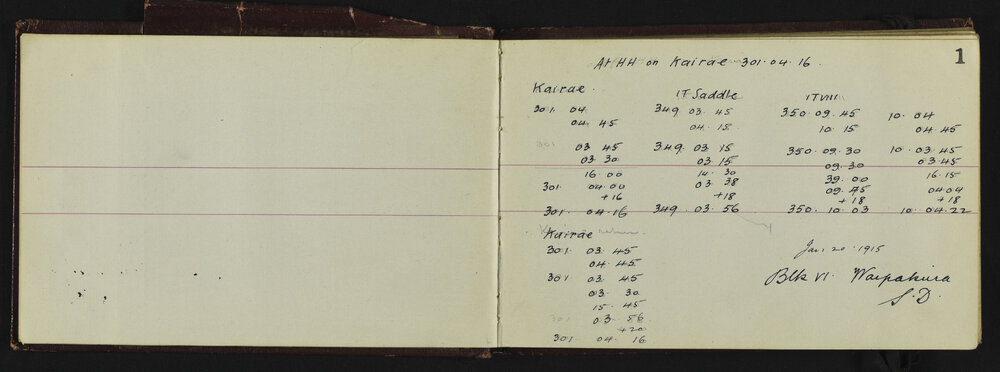 1
At HH on Kairae 301·04·16
Kairae IT Saddle ITVIII
301 04 349 03 45 350·09·45 10·04
04 45 04·15 10·15 04·45
301 03 45 349 03 15 350·09·30 10·03·45
03 30 03 15 09·30 03·45
16 00 14·30 39·00 16·15
301 04·00 03 38 09·45 04·04
+16 +18 +18 +18
301 04·16 349·03·56 350·10·03 10·04·22
Kairae
301 03 45
04 45
301 03 45
03 30
15 45
301 03·56
+20
301 04 16
Jan 20 1915
Blk VI Waipakura
S.D.